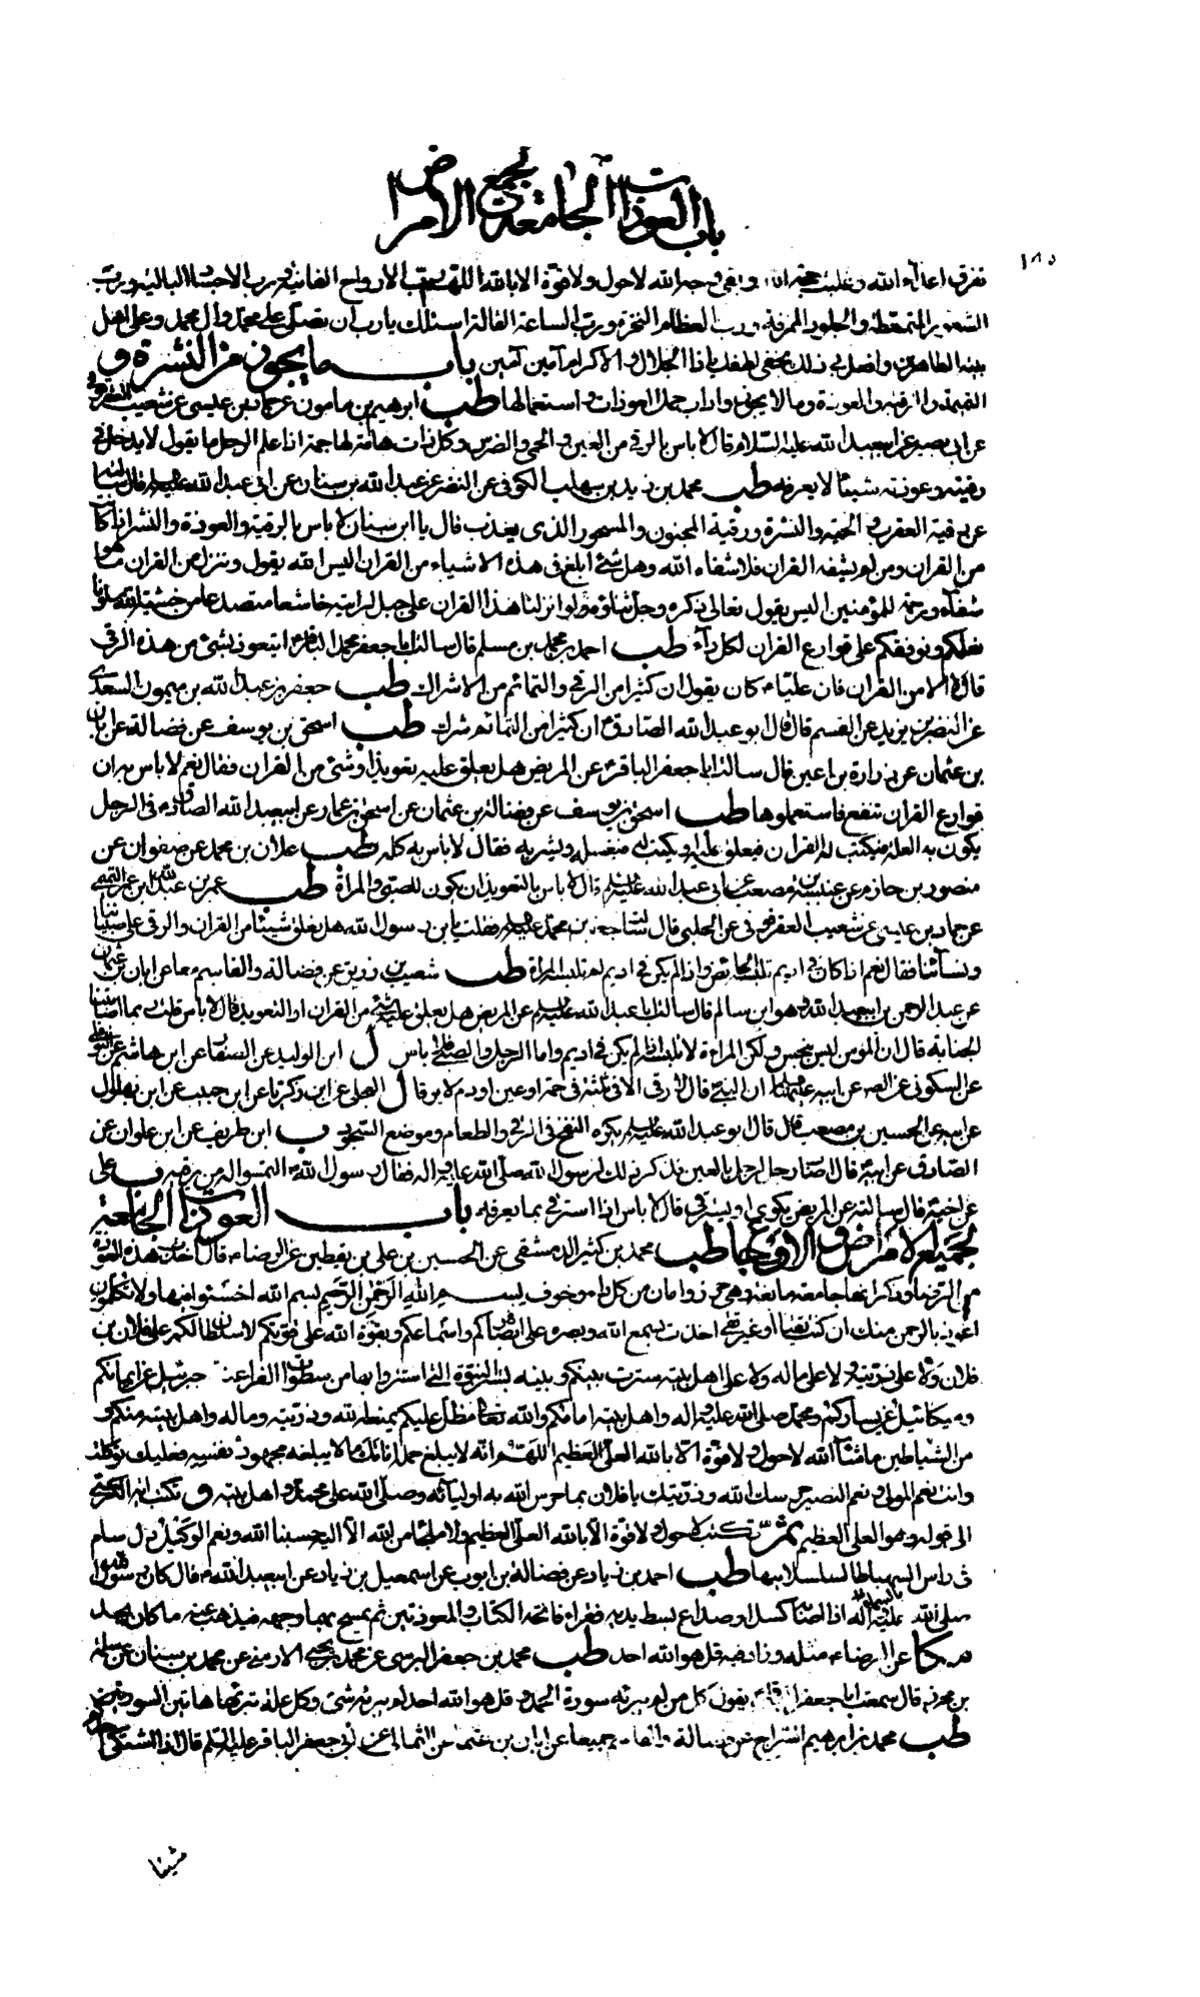 باب العوذات الجامعة لجميع الامراض
١٨٥
تفرق اعداء الله وغلبت حجة الله وبقى وجه الله لا حول ولا قوة الا بالله اللهم رب الارواح الفانية ورب الاجساد البالية ورب
الشعور المتمعطة والجلود الممزقة ورب العظام النخرة ورب الساعة القائمة اسئلك يا رب ان تصلى على محمد وال محمد وعلى اهل
بيته الطاهرين وافعل بى ذلك بخفى لطفك يا ذا الجلال والاكرام آمين آمين باب ما يجوز من النشرة و
التميمة والرقية والعوذة وما لا يجوز واداب حمل العوذات واستعمالها طب ابرهيم بن مامون عن حماد بن عيسى عن شعيب العقرقوفى
عن ابى بصير عن ابيعبد الله عليه السلام قال لا باس بالرقى من العين والحمى والضرس وكل ذات هامة لها حمة اذا علم الرجل ما يقول لا يدخل فى
رقيته وعوذته شيئا لا يعرفه طب محمد بن زيد بن سهلب الكوفى عن النضر عن عبد الله بن سنان عن ابى عبد الله عليه السلام قال سالته
عن رقية العقرب والحية والنشرة ورقية المجنون والمسحور الذى يعذب قال يا ابن سنان لا باس بالرقية والعوذة والنشر اذا كانت
من القران ومن لم يشفه القران فلا شفاء الله وهل شئ ابلغ فى هذه الاشياء من القران اليس الله يقول وننزل من القران ما هو
شفاء ورحمة للمؤمنين اليس يقول تعالى ذكره وجل ثناؤه لو انزلنا هذا القران على جبل لرايته خاشعا متصدعا من خشية الله سلونا
نعلمكم ونوقفكم على قوارع القران لكل داء طب احمد بن محمد بن مسلم قال سالت ابا جعفر محمد الباقر ع ايتعوذ بشئ من هذه الرقى
قال لا الا من القران فان عليا ع كان يقول ان كثيرا من الرقى والتمائم من الاشراك طب جعفر بن عبد الله بن ميمون السعدى
عن النضر بن يزيد عن القسم قال قال ابو عبد الله الصادق ع ان كثيرا من التمائم شرك طب اسحق بن يوسف عن فضالة عن ابان
بن عثمان عن زرارة بن اعين قال سالت ابا جعفر الباقر ع عن المريض هل يعلق عليه تعويذ او شئ من القران فقال نعم لا باس به ان
قوارع القران تنفع فاستعملوها طب اسحق بن يوسف عن فضالة بن عثمان عن اسحق بن عمار عن ابيعبد الله الصادق ع فى الرجل
يكون به العلة فيكتب له القران فيعلق عليه او يكتب له فيغسله ويشربه فقال لا باس به كله طب علان بن محمد عن صفوان عن
منصور بن حازم عن عنبسة بن مصعب عن ابى عبد الله عليه السلم قال لا باس بالتعويذ ان يكون للصبى والمراة طب عمر بن عبد الله بن عمر التميمى
عن حماد بن عيسى عن شعيب العقرقوفى عن الحلبى قال سالت جعفر بن محمد عليه السلم فقلت يا بن رسول الله هل نعلق شيئا من القران والرقى على صبياننا
ونسآئنا فقال نعم اذا كان فى اديم تلبسه الحائض واذا لم يكن فى اديم لم تلبسه المراة طب شعيب بن زريق عن فضالة والقاسم معا عن ابان بن عثمان
عن عبد الرحمن بن ابيعبد الله وهو ابن سالم قال سالت ابا عبد الله عليه السلم عن المريض هل يعلق عليه شئ من القران او التعويذ قال لا باس قلت ربما اصابتنا
الجنابة قال ان المؤمن ليس بنجس ولكن المراة لا تلبسه اذا لم يكن فى اديم واما الرجل والصبى فلا باس ل ابن الوليد عن السقا عن ابن هاشم عن النوفلى
عن السكونى عن الصه عن ابيه عليهما السلم ان النبى ص قال لا رقى الا فى ثلثة فى حمة او عين او دم لا يرقا ل العجلى عن ابن زكريا عن ابن حبيب عن ابن بهلول
عن ابيه عن الحسين بن مصعب قال قال ابو عبد الله عليه السلم يكره النفخ فى الرقى والطعام وموضع السجود ب ابن طريف عن ابن علوان عن
الصادق عن ابيه ع قال اصاب رجل لرجل بالعين فذكر ذلك لرسول الله صلى الله عليه واله فقال رسول الله ص التمسوا له من يرقيه ب على
عن اخيه ع قال سالته عن المريض يكوى او يسترقى قال لا باس اذا استرقى بما يعرفه باب العوذات الجامعة
لجميع الامراض والاوجاع طب محمد بن كثير الدمشقى عن الحسين بن على بن يقطين عن الرضا ع قال اخذت هذه العوذة
من الرضا ع وذكر انها جامعة مانعة وهى حرز وامان من كل داء وخوف بسم الله الرحمن الرحيم بسم الله اخسئوا فيها ولا تكلمون
اعوذ بالرحمن منك ان كنت تقيا او غير تقى اخذت بسمع الله وبصره على ابصاركم واسماعكم وبقوة الله على قوتكم لا سلطان لكم على فلان بن
فلان ولا على ذريته ولا على ماله ولا على اهل بيته سترت بينكم وبينه بستر النبوة الذى استتروا بها من سطوات الفراعنة جبرئيل عن ايمانكم
وميكائيل عن يساركم ومحمد صلى الله عليه واله واهل بيته امامكم والله تعالى مظل عليكم بمنعه الله وذريته وماله واهل بيته منكم و
من الشياطين ماشآء الله لا حول ولا قوة الا بالله العلى العظيم اللهم انه لا يبلغ حمله اناتك ولا يبلغه مجهود نفسه فعليك توكلت
وانت نعم المولى ونعم النصير حرسك الله وذريتك يا فلان بما حرس الله به اوليائه وصلى الله على محمد واهل بيته و تكتب اية الكرسى
الى قوله وهو العلى العظيم ثم تكتب لا حول ولا قوة الا بالله العلى العظيم ولا ملجا من الله الا اليه حسبنا الله ونعم الوكيل دل سلم
فى راس السهباطا لسلسلا بيها طب احمد بن زياد عن فضالة بن ايوب عن اسمعيل بن زياد عن ابيعبد الله ع قال كان رسول الله
صلى الله عليه واله اذا اصابه كسل او صداع بسط يديه فقراء فاتحة الكتاب والمعوذتين ثم يمسح بهما وجهه فيذهب عنه ما كان يجد
مكا عن الرضا ع مثله وزاد فيه قل هو الله احد طب محمد بن جعفر البرسى عن محمد بن يحيى الارمنى عن محمد بن سنان عن سلمة
بن محرز قال سمعت ابا جعفر الباقر ع يقول كل من لم يبرئه سورة الحمد وقل هو الله احد لم يبرئه شئ وكل علة تبرئها هاتين السورتين
طب محمد بن ابرهيم السراج عن فضالة والقاسم جميعا عن ابان بن عثمان عن الثمالى عن ابى جعفر الباقر عليه السلم قال اذا اشتكى احدكم
شيئا